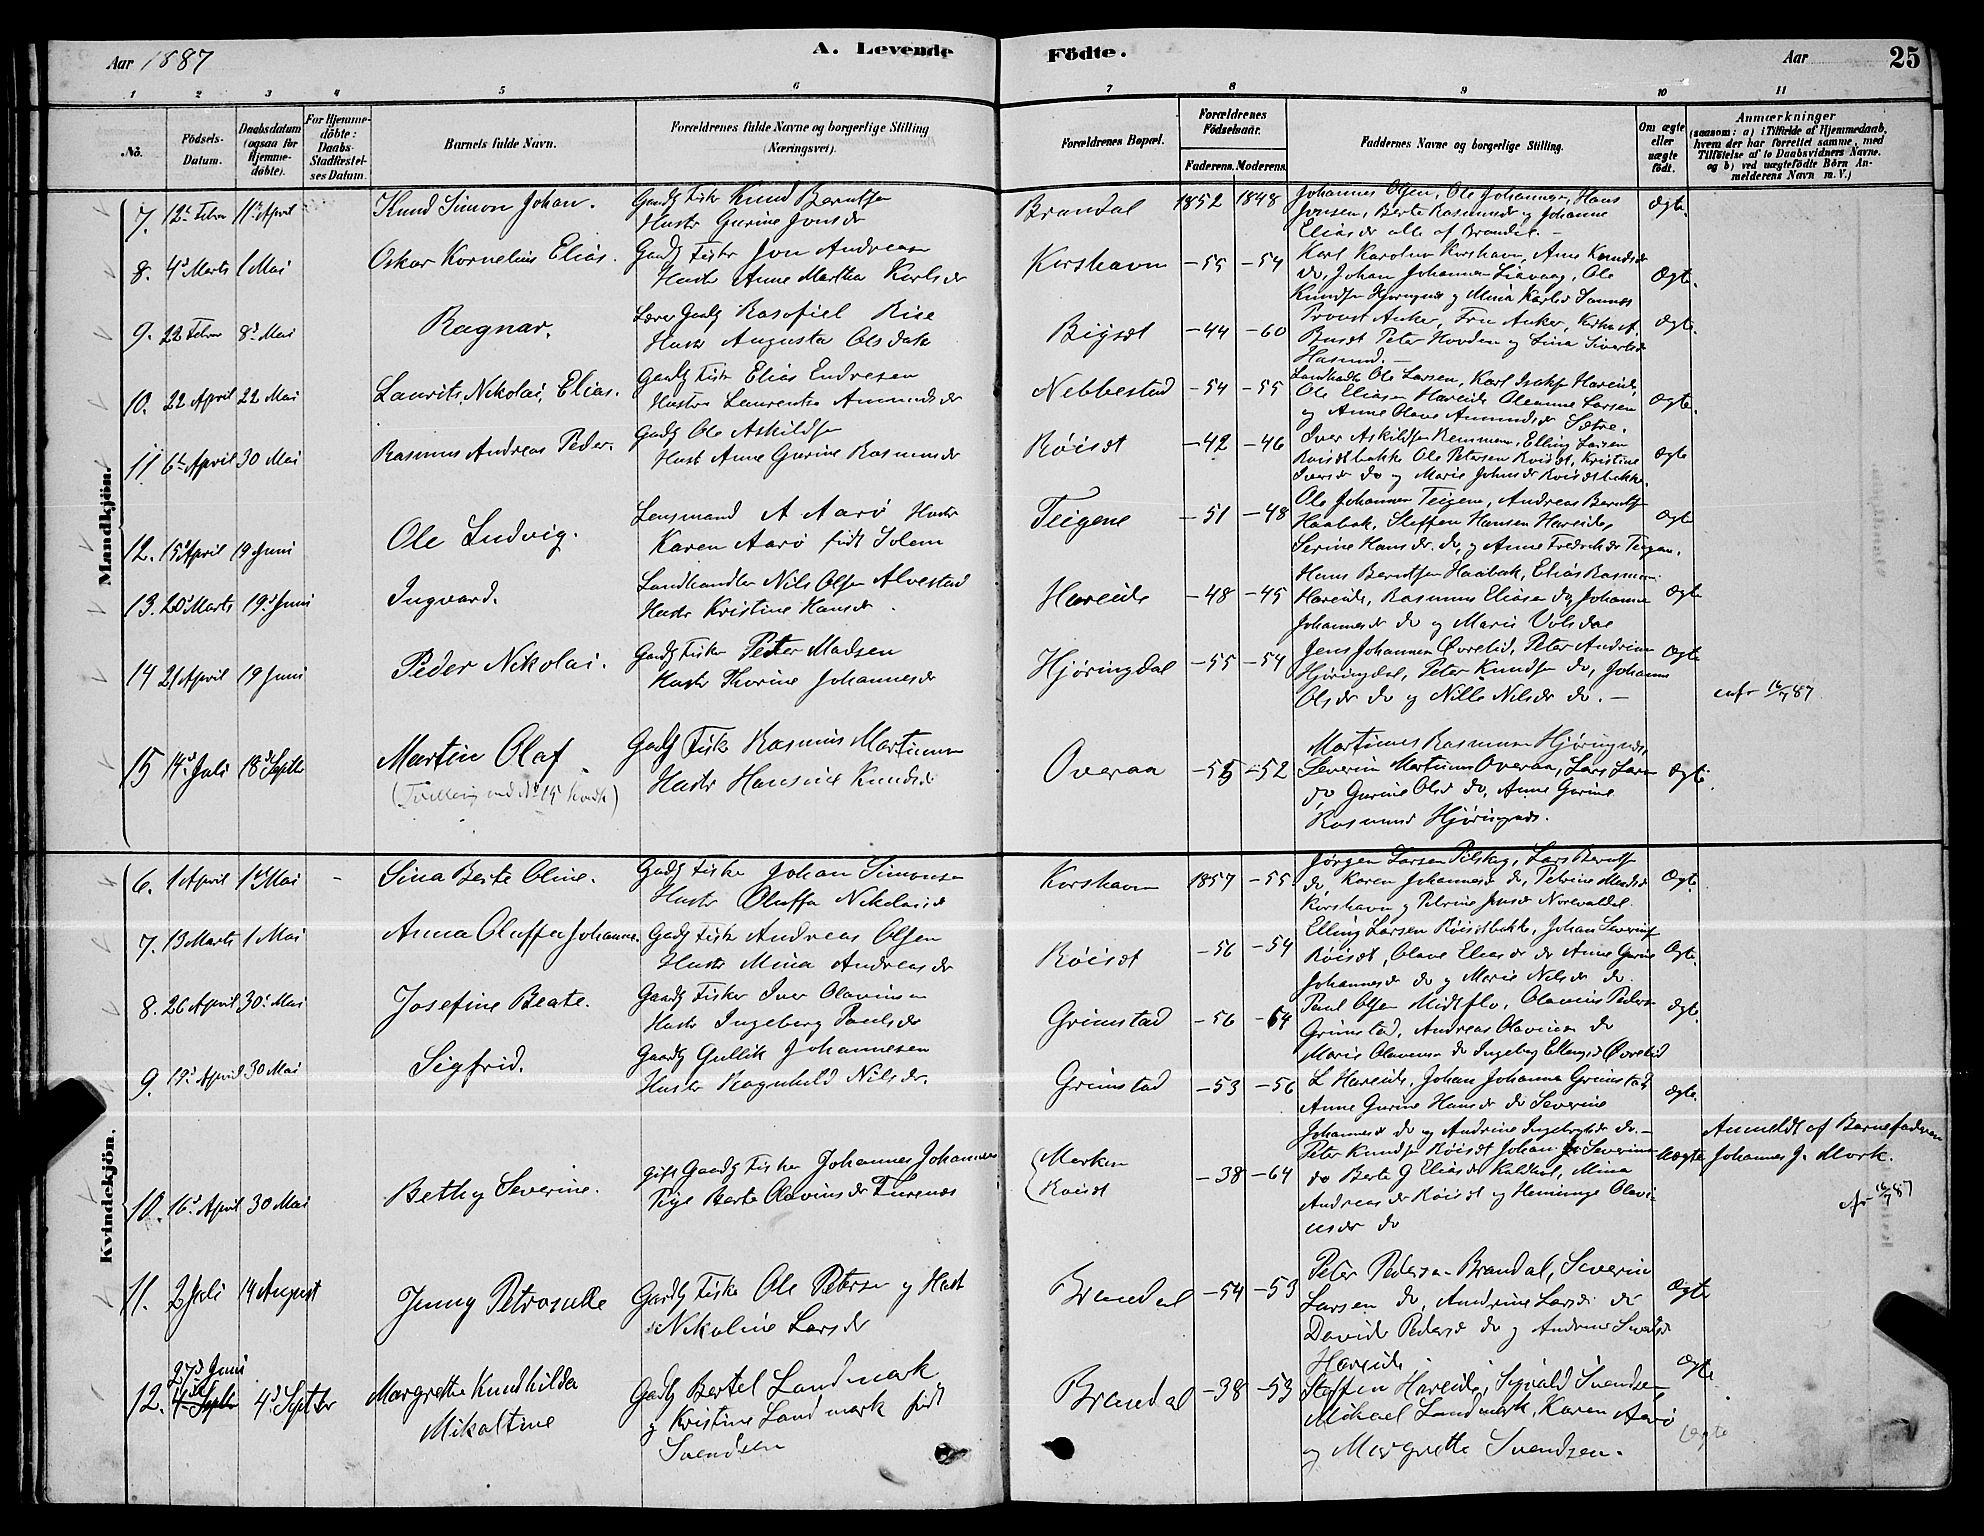 Aar 1887
A. Levende
Födte.
Aar
25
1 2 3 4 5 6 7 8 9 10 11
No.
Födsels-Datum.
Daabsdatum (ogsaa for Hjemme-döbte).
For Hjemme-döbte: Daabs-Stadfæstel-ses Datum.
Barnets fulde Navn.
Forældrenes fulde Navne og borgerlige Stilling (Næringsvei).
Forældrenes Bopæl.
Forældrenes Födselsaar.
Faderens. Moderens.
Faddernes Navne og borgerlige Stilling.
Om ægte eller uægte födt.
Anmærkninger
(saasom: a) i Tilfælde af Hjemmedaab, hvem der har forrettet samme, med Tilföielse af to Daabsvidners Navne. og b) ved uægtefödte Börn An-melderens Navn m. V.)
Mandkjön.
7. 12te Febr 11te April Knud Simon Johan.
Gaardb Fisker Knud Berntsen
Hustr Gurine Jonsdr
Brandal 1852 1848
Johannes Olsen, Ole Johannesen, Hans
Jonsen, Berte Rasmusdr og Johanne
Eliasdr alle af Brandal.
Ægte.
8. 4de Marts 1 Mai Oskar Kornelius Elias.
Gaardb Fisker Jon Andreasen
Hustr Anne Martha Karlsdr
Korshavn -55 -54
Ægte.
9. 22 Febr 8de Mai Ragnar.
Lærer Gaardb Rasofiel Rise
Hustr Augusta Olsdatr
Bigsæt -44 -60
Provst Anker, Fru Anker,
Peter Hovden og Lina Sivertsdr
Hasund.
Ægte.
10. 22 April 22 Mai Laurits, Nikolai, Elias.
Gaardb Fisk Elias Endresen
Hustr Laurentse Amundsdr
Nebbestad -54 -55
Landhandler Ole Larsen, Karl Hareide,
Ole Eliasen Hareide Oleanne Larsen
og Anne Olave Amundsdr Sætre.
Ægte.
11 6te April 30 Mai Rasmus Andreas Peder.
Gaardb Ole Askildsen
Hustr Anne Gurine Rasmusdr
Röisæt -42 -46
Iver Askildsen Remmem, Elling Larsen
Röisætbakke Ole Petersen Röisæt, Kristine
Iversdr do og Marie Johnsdr Röisætbakke.
Ægte
12. 15de April 19 Juni Ole Ludvig.
Lensmand A Aarö Hustr
Karen Aarö födt Solem
Teigene -51 -48
Ole Johannesen Teigene, Andreas Berntsen
Haabak, Steffen Hansen Hareide,
Serine Hansdr do, og Anne Fredriksdr Teigene.
Ægte
13. 20de Marts 19de Juni Ingvard.
Landhandler Nils Olsen Alvestad
Hustr Kristine Hansdr
Hareide -48 -45
Hans Berntsen Haabak, Elias Rasmusen
Hareide, Rasmus Eliasen do, Johanne
Johannesdr do og Marie Volsdal
Ægte
14 21 April 19 Juni Peder Nikolai.
Gaardb Fisker Peter Madsen
Hustr Thorine Johannesdr
Hjöringdal -55 -54
Jens Johannesen Övrelid, Peter Andreasen
Hjöringdal, Peter Knudsen do, Johanne
Olsdr do og Nille Nilsdr do.
Ægte
16/7 87
15 14de Juli 18de Septbr Martin Olaf
(Tvilling med No 15 Kvindk)
Gaardb Fisk Rasmus Martinusen
Hustr Hansine Knudsdr
Overaa -55 -52
Martinus Rasmusen Hjöringnæs,
Severin Martinusen Overaa, Lars Larsen
do, Gurine Olsdr do, Anne Gurine
Rasmusdr Hjöringnæs.
Ægte.
Kvindekjön.
6. 1 April 1ste Mai - Sina Berte Oline.
Gaardb Fisker Johan Simonsen
Hustr Oluffa Nikolaisdr
Korshavn 1857 -55
Jörgen Larsen Pilskog, Lars Berntsen
do, Karen Johannesdr do, Petrine Madsdr
Korshavn og Petrine Jensdr Norevaldal.
Ægte
7. 13 Marts 1 Mai Anna Oluffa Johanne.
Gaardb Fisk Andreas Olsen
Hustr Mina Andreasdr
Röisæt -56 -54
Elling Larsen Röisætbakke, Johan Severinsen
Röisæt, Olave Eliasdr do Anne Gurine
Johannesdr do og Marie Nilsdr do.
Ægte.
8. 26 April 30te Mai Josefine Beate.
Gaardb Fisker Iver Olavinsen
Hustr Ingeborg Paulsdr
Grimstad -56 -64
Paul Olsen Midtflo, Olavius Pedersen
Grimstad, Andreas Olavinsen do
Marie Olavinsen do Ingeborg Ellingsdr Övrelid
Ægte.
9. 19de April 30 Mai Sigfrid.
Gaardb Gullik Johannesen
Hustr Ragnhild Nilsdr.
Grimstad -53 -56
L Hareide, Johan Johannesen Grimstad,
Anne Gurine Hansdr do Severine
Johannesdr do og Andrine Ingebrigtsdr do.
Ægte.
10. 16de April 30 Mai Bethy Severine.
gift Gaardb Fisker Johannes Johannesen
Pige Berte Olavinsdr Furenæs
Röisæt -38 -64
Peter Knudsen Röisæt Johan Severinsen
do Berte G Eliasdr Kaldhol, Mina
Andreasdr Röisæt og Hemminge Olavi-
nusdr do
Uægte
Anmeldt af Barnefaderen
Johannes J. Mork.
16/7 87
11. 2 Juli 14 August Jenny Petrosille
Gaardb Fisker Ole Petersen og Hustr
Nikoline Larsdr
Brandal -54 -53
Peter Pedersen Brandal, Severin
Larsen do, Andrine Larsdr do
Davide Pedersdr do og Andrine Svendsdr
Hareide.
Ægte
12. 27de Juni 4de Septbr Margrethe Knudhilda
Mikaltine
Gaardb Bertel Landmark
og Kristine Landmark födt
Svendsen
Brandal -38 -53
Steffen Hareide, Sigvald Svendsen,
Mikael Landmark, Karen Aarö
og Margrethe Svendsen.
Ægte.
Ægte